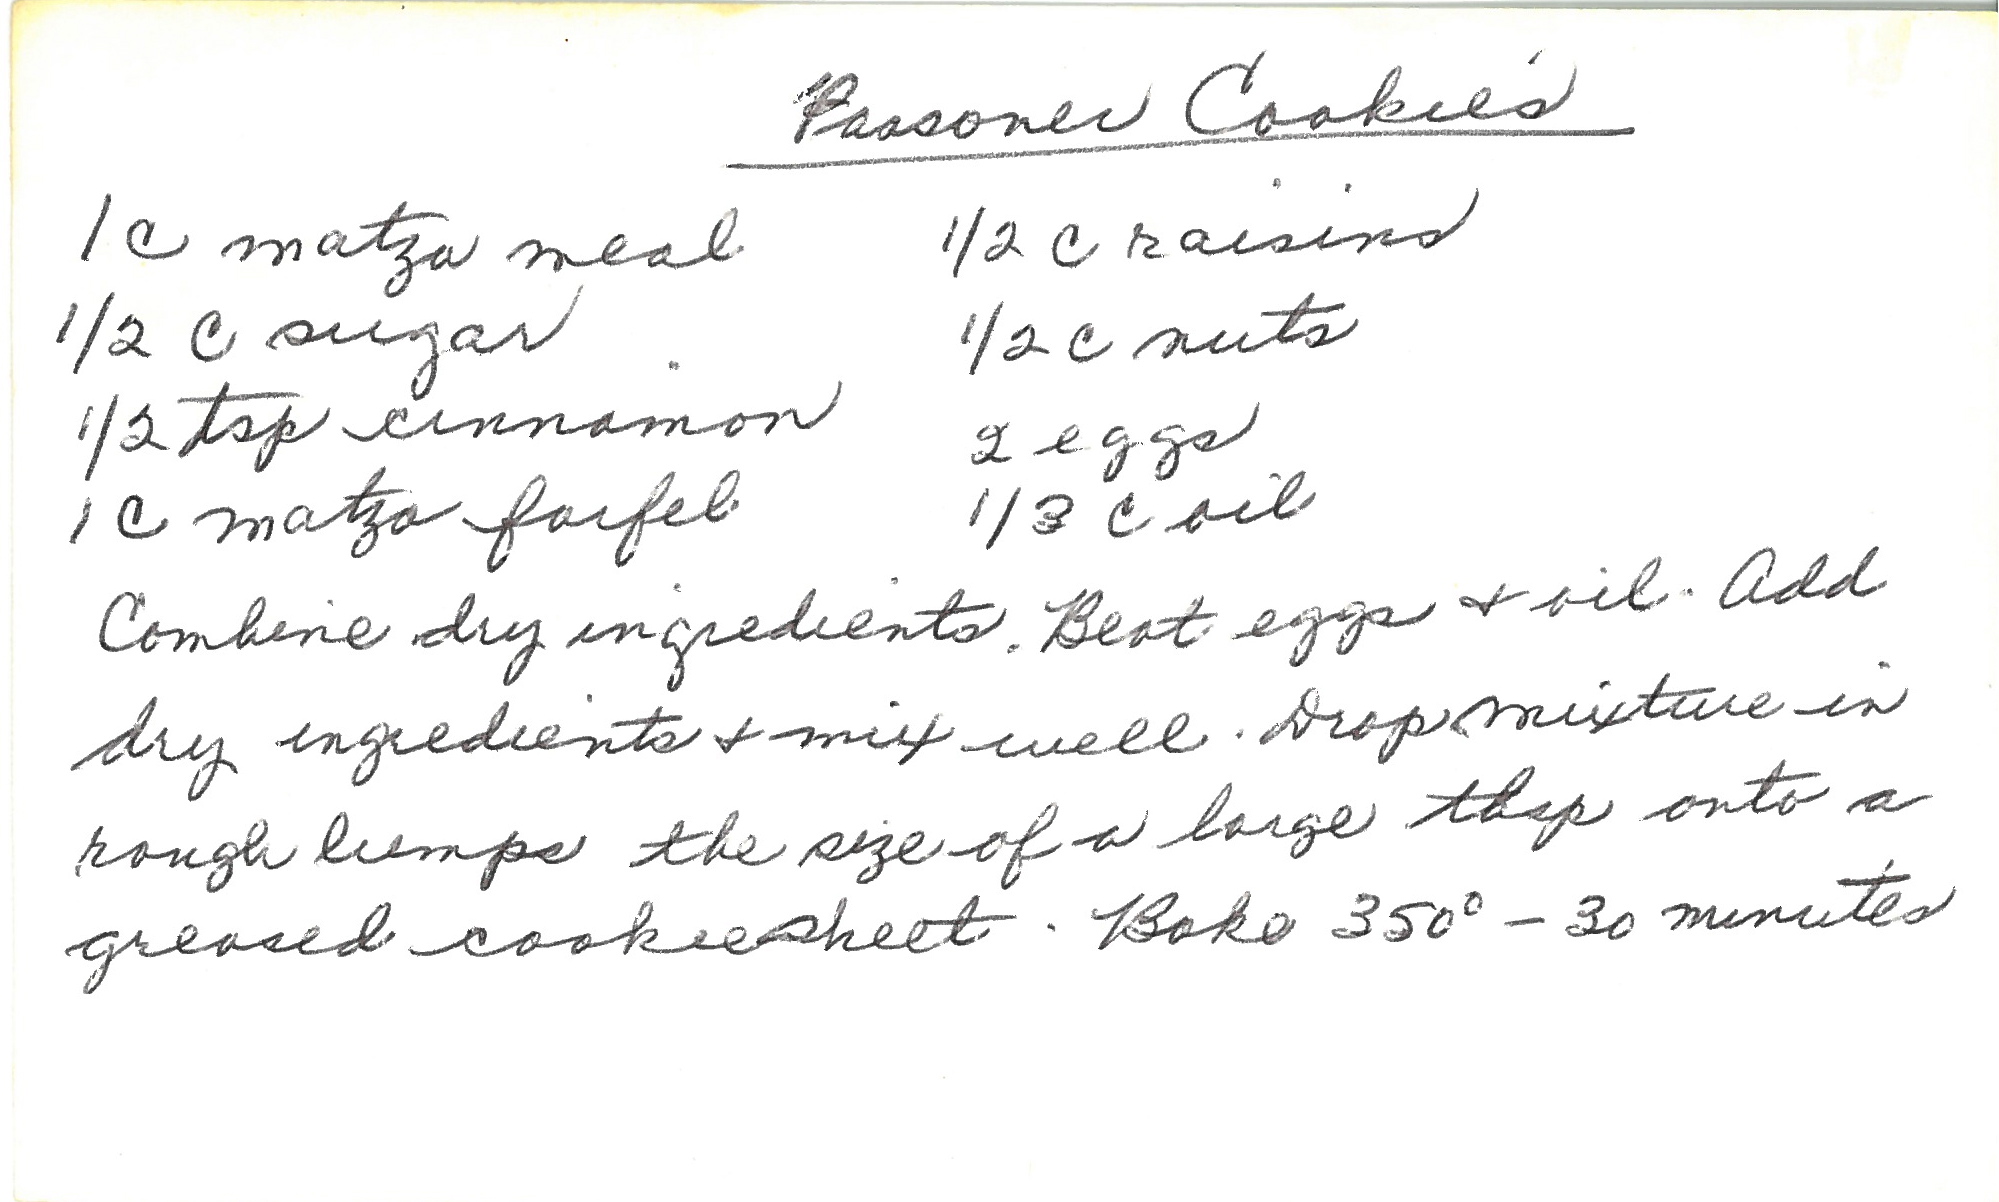 Passover Cookies
1 c matza meal 1/2 c raisins
1/2 c sugar 1/2 c nuts
1/2 tsp cinnamon 2 eggs
1 c matzo farfel 1/3 c oil
Combine dry ingredients. Beat eggs + oil. Add
dry ingredients + mix well. Drop mixture in
rough lumps the size of a large tbsp onto a
greased cookie sheet. Bake 350° - 30 minutes